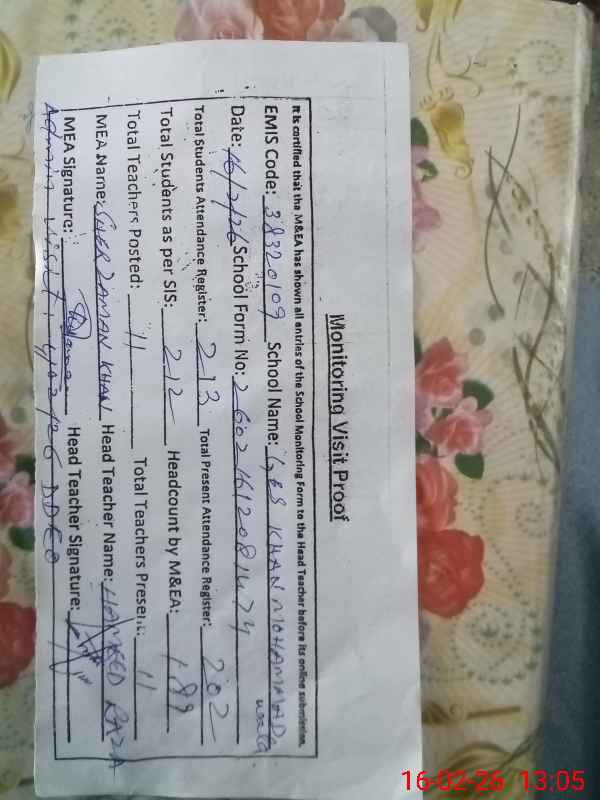 Monitoring Visit Proof
It is certified that the M&EA has shown all entries of the School Monitoring Form to the Head Teacher before its online submission.
EMIS Code: 38320109 School Name: GES KHAN MOHAMMAD
Date: 16/2/26 School Form No: 26021612081474
Total Students Attendance Register: 213 Total Present Attendance Register: 202
Total Students as per SIS: 212 Headcount by M&EA: 189
Total Teachers Posted: 11 Total Teachers Present: 11
MEA Name: SHER ZAMAN KHAN Head Teacher Name: HAMEED RAZA
MEA Signature: Head Teacher Signature:
Admin visit. 4/02/26 DDEO
16-02-26 13:05